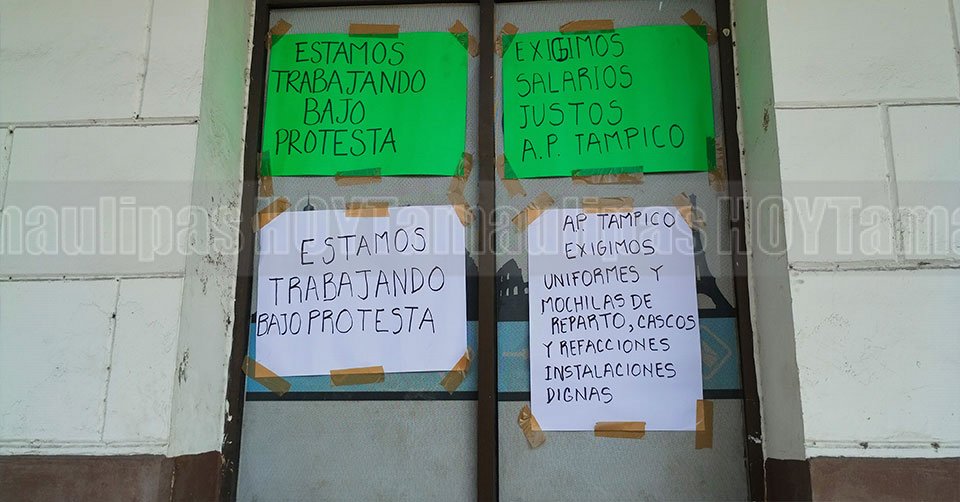 ESTAMOS
TRABAJANDO
BAJO
PROTESTA
EXIGIMOS
SALARIOS
JUSTOS
A.P. TAMPICO
ESTAMOS
TRABAJANDO
BAJO PROTESTA
AP. TAMPICO
EXIGIMOS
UNIFORMES Y
MOCHILAS DE
REPARTO, CASCOS
Y REFACCIONES
INSTALACIONES
DIGNAS
maulipasHOYTamaulipasHOYTamaulipasHOYTama